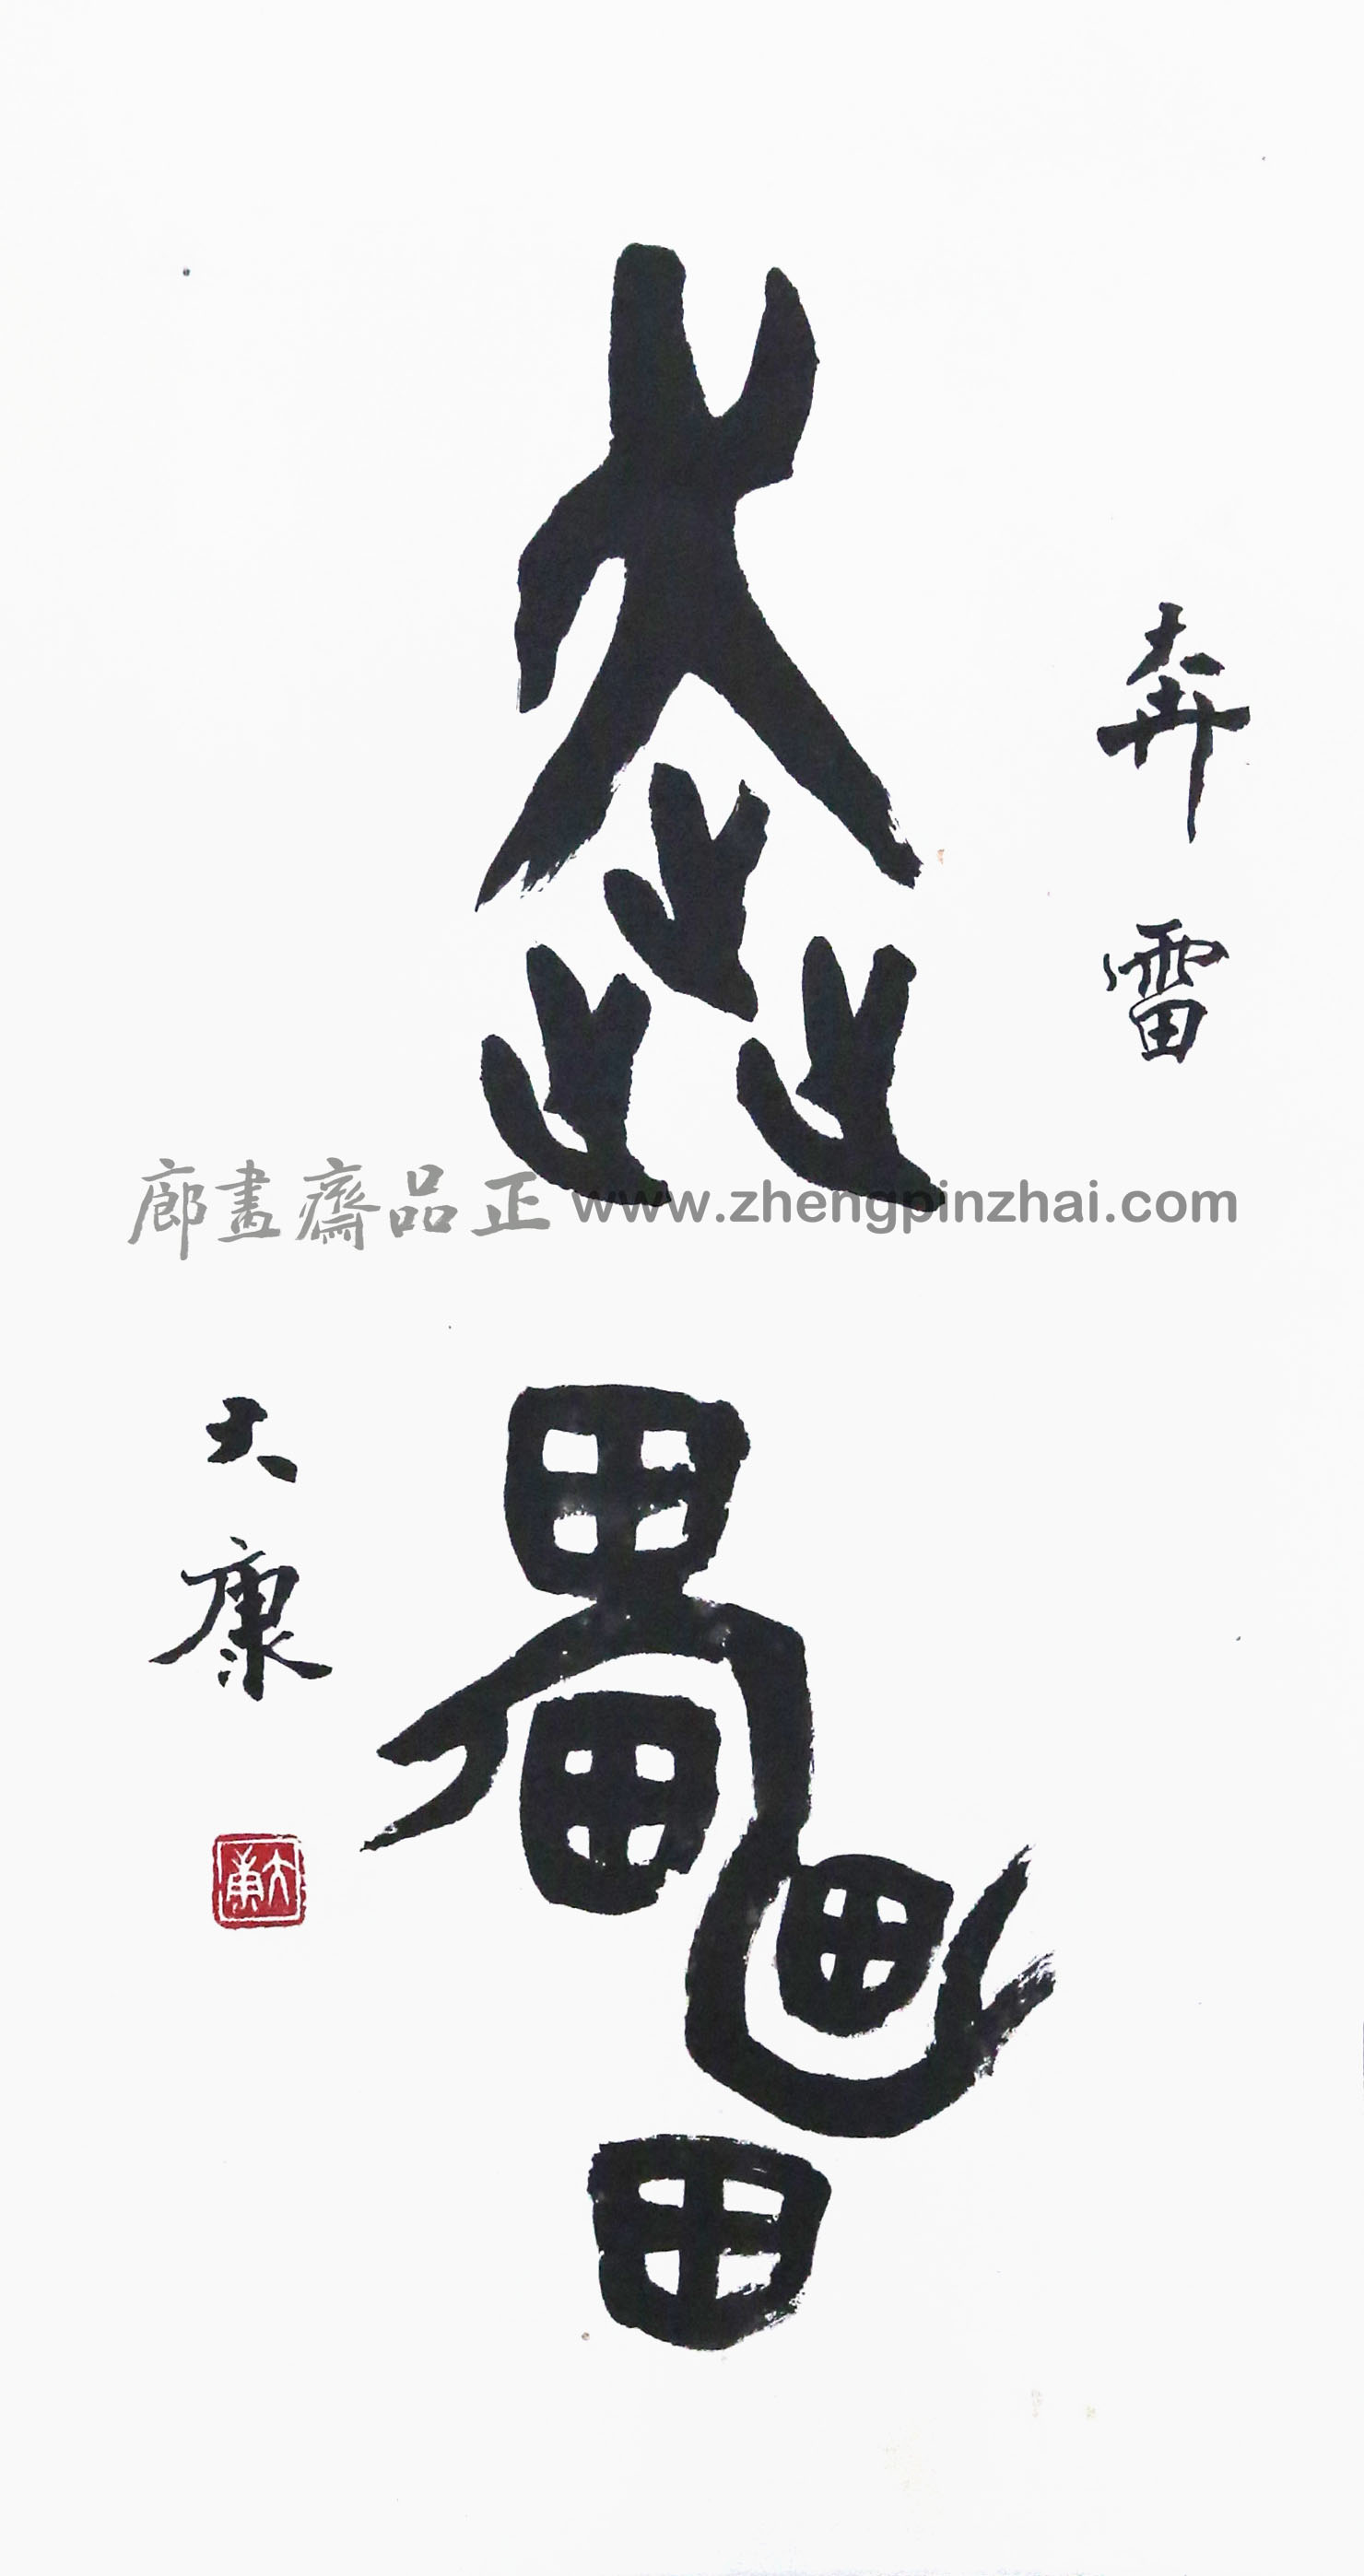 奔雷
奔雷
大康
大康
廊畫齋品正 www.zhengpinzhai.com